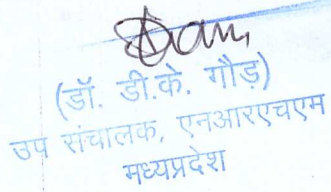 (डॉ. डी.के. गौड़)
उप संचालक, एनआरएचएम
मध्यप्रदेश